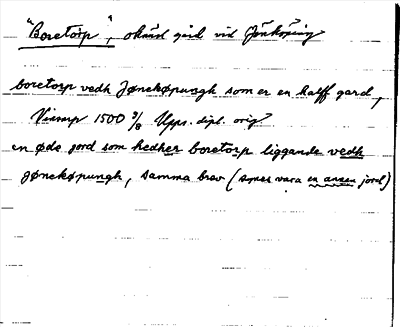 "Boretorp", okänd gård vid Jönköping
boretorp vedh Jønekøpungh som er en halff gard,
Visings 1500 3/8 Upps. dipl. orig
en øde jord som hedher boretorp liggande vedh
Jønekøpungh, samma brev (synes vara en annen jord)